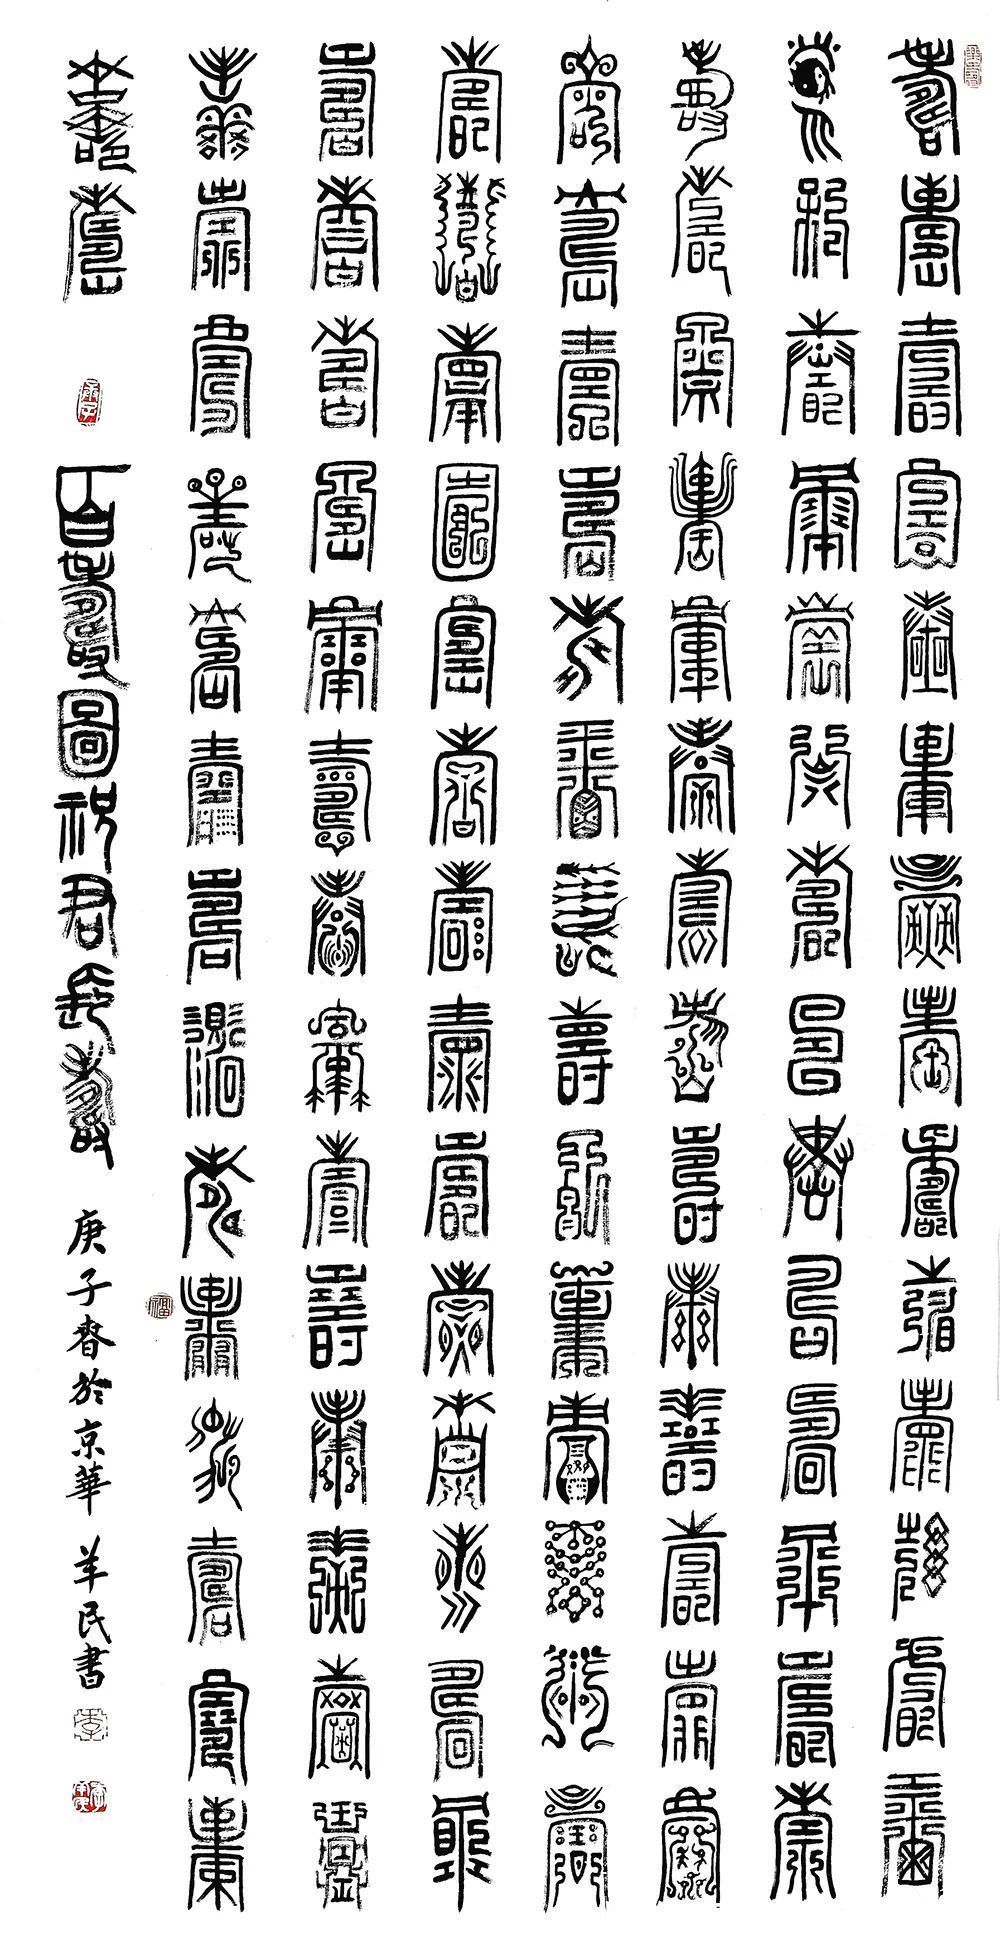 壽壽壽壽壽壽壽壽壽壽壽壽壽壽
壽壽壽壽壽壽壽壽壽壽壽壽壽壽
壽壽壽壽壽壽壽壽壽壽壽壽壽壽
壽壽壽壽壽壽壽壽壽壽壽壽壽壽
壽壽壽壽壽壽壽壽壽壽壽壽壽壽
壽壽壽壽壽壽壽壽壽壽壽壽壽壽
壽壽壽壽壽壽壽壽壽壽壽壽壽壽
福
壽壽 百壽圖祝君長壽 庚子春於京華 羊民書